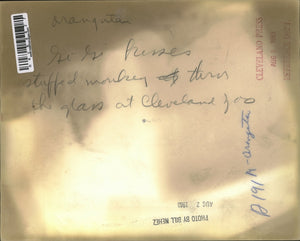 orangutan
Gi Gi kisses
stuffed monkey thru
the glass at Cleveland zoo
CLEVELAND PRESS
AUG
PHOTO BY BILL NEHEZ
AUG 2
orangutan